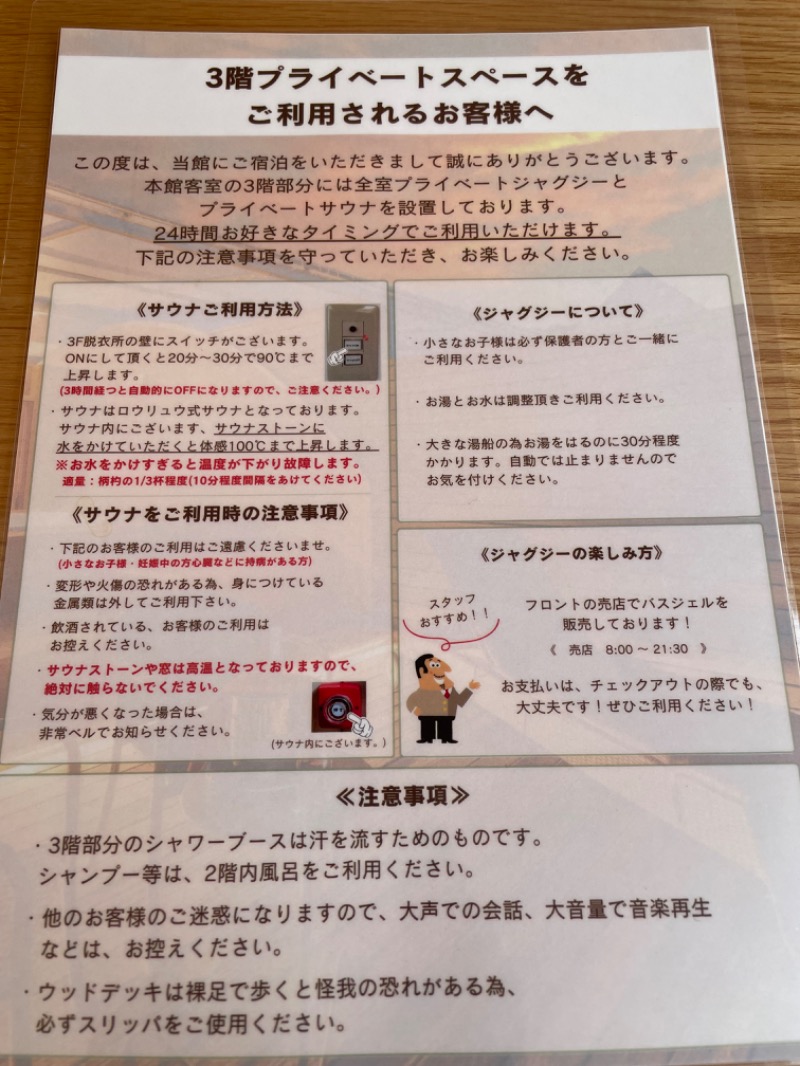 3階プライベートスペースを
ご利用されるお客様へ
この度は、当館にご宿泊をいただきまして誠にありがとうございます。
本館客室の3階部分には全室プライベートジャグジーと
プライベートサウナを設置しております。
24時間お好きなタイミングでご利用いただけます。
下記の注意事項を守っていただき、お楽しみください。
《サウナご利用方法》
・3F脱衣所の壁にスイッチがございます。
ONにして頂くと20分～30分で90℃まで
上昇します。
(3時間経つと自動的にOFFになりますので、ご注意ください。)
・サウナはロウリュウ式サウナとなっております。
サウナ内にございます、サウナストーンに
水をかけていただくと体感100℃まで上昇します。
※お水をかけすぎると温度が下がり故障します。
適量：柄杓の1/3杯程度(10分程度間隔をあけてください)
《サウナをご利用時の注意事項》
・下記のお客様のご利用はご遠慮くださいませ。
(小さなお子様・妊娠中の方心臓などに持病がある方)
・変形や火傷の恐れがある為、身につけている
金属類は外してご利用下さい。
・飲酒されている、お客様のご利用は
お控えください。
・サウナストーンや窓は高温となっておりますので、
絶対に触らないでください。
・気分が悪くなった場合は、
非常ベルでお知らせください。
(サウナ内にございます。)
《ジャグジーについて》
・小さなお子様は必ず保護者の方とご一緒に
ご利用ください。
・お湯とお水は調整頂きご利用ください。
・大きな湯船の為お湯をはるのに30分程度
かかります。自動では止まりませんので
お気を付けください。
《ジャグジーの楽しみ方》
スタッフ
おすすめ！！
フロントの売店でバスジェルを
販売しております！
《 売店 8:00～21:30 》
お支払いは、チェックアウトの際でも、
大丈夫です！ぜひご利用ください！
≪注意事項≫
・3階部分のシャワーブースは汗を流すためのものです。
シャンプー等は、2階内風呂をご利用ください。
・他のお客様のご迷惑になりますので、大声での会話、大音量で音楽再生
などは、お控えください。
・ウッドデッキは裸足で歩くと怪我の恐れがある為、
必ずスリッパをご使用ください。